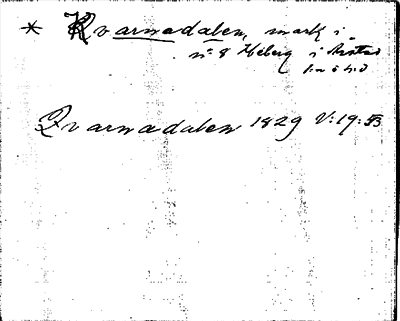 * Kvarnadalen, mark i
nº 8 Heberg i Årstad
s:n o h:d
Qvarnadalen 1829 V:19:53